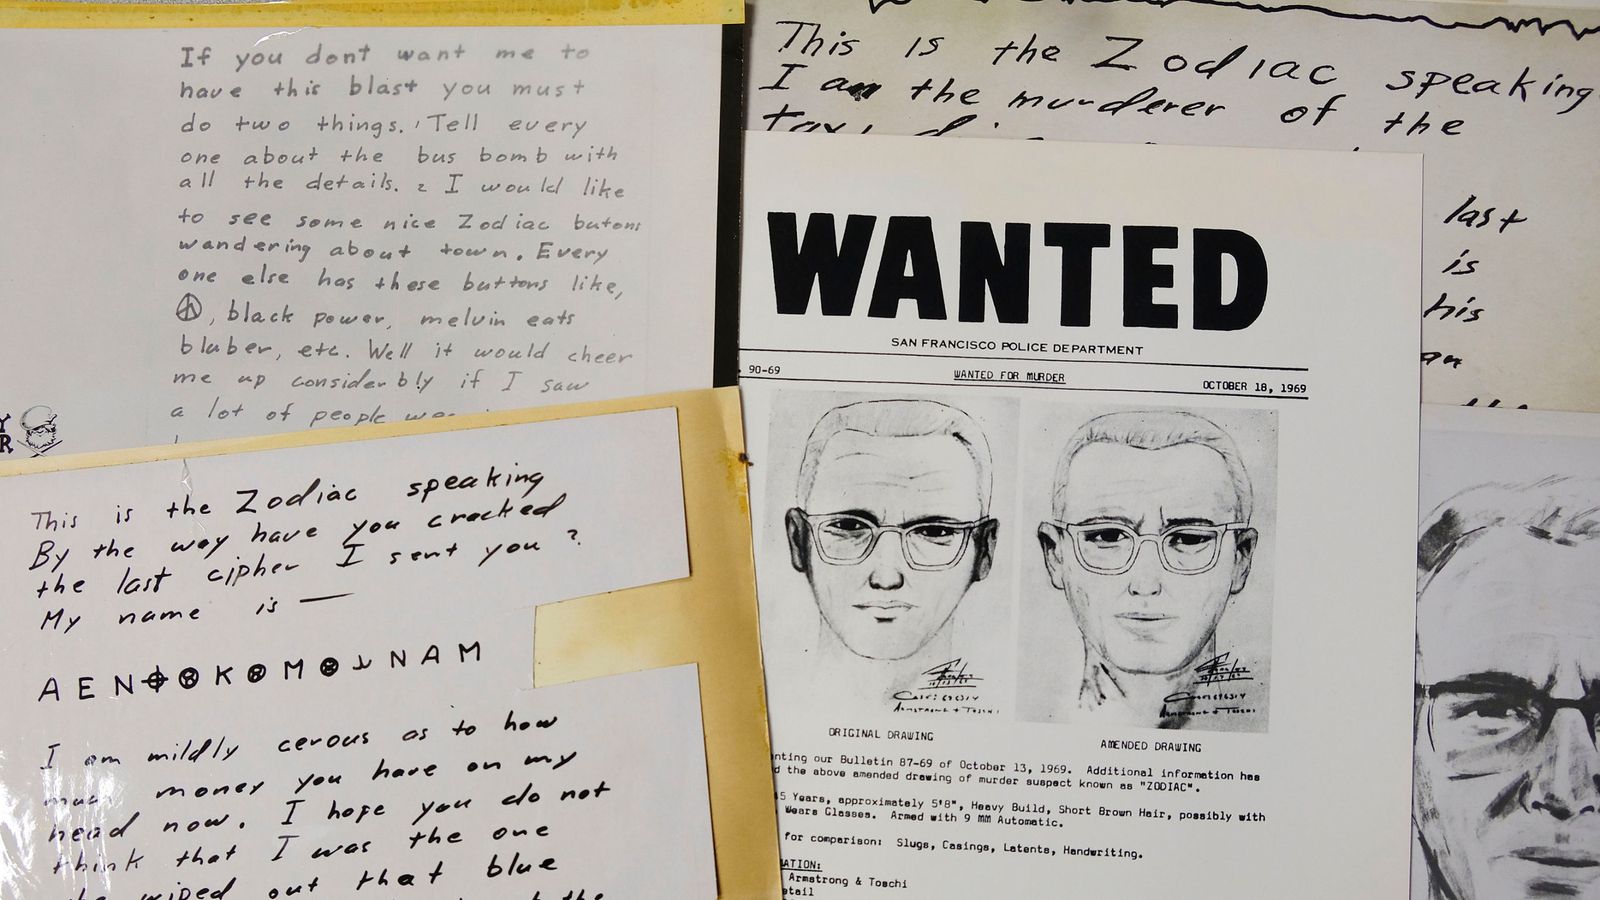 If you dont want me to
have this blast you must
do two things. 1 Tell every
one about the bus bomb with
all the details. 2 I would like
to see some nice Zodiac butons
wandering about town. Every
one else has these buttons like,
☮, black power, melvin eats
bluber, etc. Well it would cheer
me up considerbly if I saw
a lot of people
This is the Zodiac speaking
By the way have you cracked
the last cipher I sent you?
My name is —
A E N ⌖ K M NAM
I am mildly cerous as to how
much money you have on my
head now. I hope you do not
think that I was the one
wiped out that blue
the
This is the Zodiac speaking
I am the murderer of the
last
is
his
an
WANTED
SAN FRANCISCO POLICE DEPARTMENT
90-69 WANTED FOR MURDER OCTOBER 18, 1969
Armstrong + Toschi
Armstrong + Toschi
ORIGINAL DRAWING AMENDED DRAWING
nting our Bulletin 87-69 of October 13, 1969. Additional information has
d the above amended drawing of murder suspect known as "ZODIAC".
5 Years, approximately 5'8", Heavy Build, Short Brown Hair, possibly with
Wears Glasses. Armed with 9 MM Automatic.
for comparison: Slugs, Casings, Latents, Handwriting.
ATION:
Armstrong & Toschi
etail